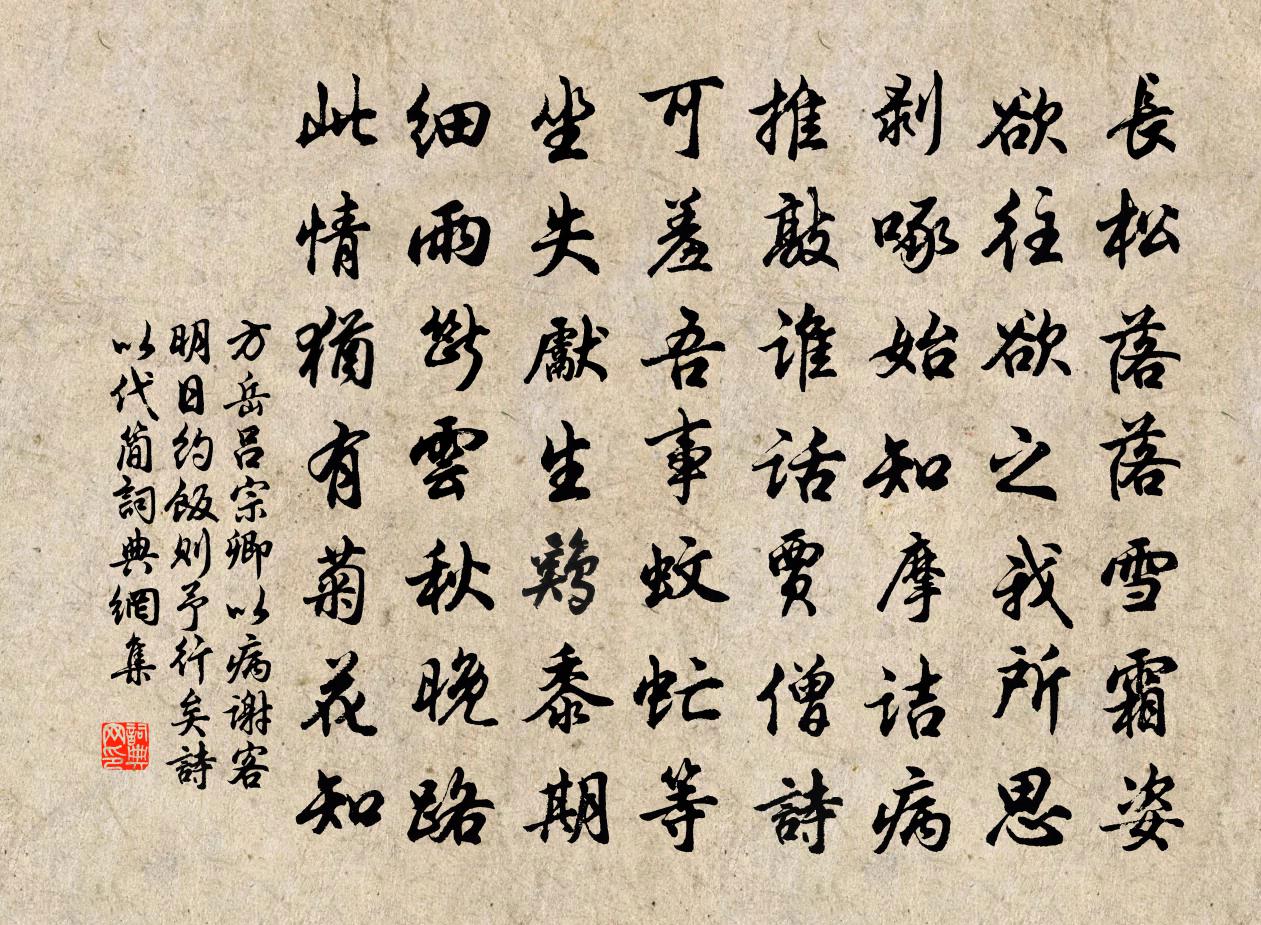 長松落落雪霜姿
欲往欲之我所思
剝啄始知摩詰病
推敲誰話賈僧詩
可羞吾事蚊虻等
坐失獻生鷄黍期
細雨斷雲秋晚路
此情猶有菊花知
方岳呂宗卿以病謝客
明日約飯則予行矣詩
以代簡詞典網集
詞典网印